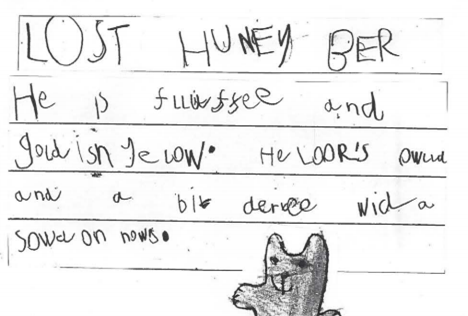 LOST HUNEY BER
He is fluiffee and
goldish yelow. He LOOR'S owld
and a bit dertee wid a
sowd on nows.